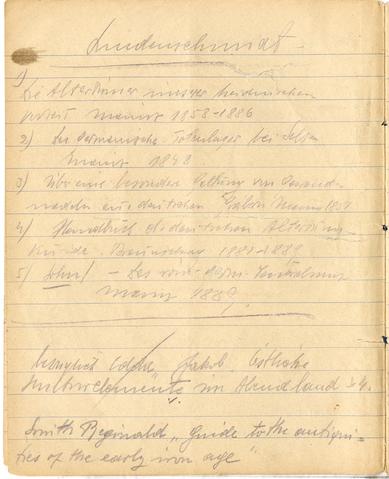 Lindenschmidt
1)
Die Altertümer unserer heidnischen
Mainz 1858-1886
2) Das germanische Totenlager bei Selzen
Mainz 1848
3) Über eine besondere Gattung von Gewand-
nadeln aus deutschen Gräbern Mainz 1851
4) Handbuch d. deutschen Altertums-
kunde. Braunschweig 1880-1889
5) Sohn) - Das röm.-germ. Zentralmus.
Mainz 1889.
Jakob,
Kulturelemente im Abendland
Smith Reginald „Guide to the antiqui-
ties of the early iron age"